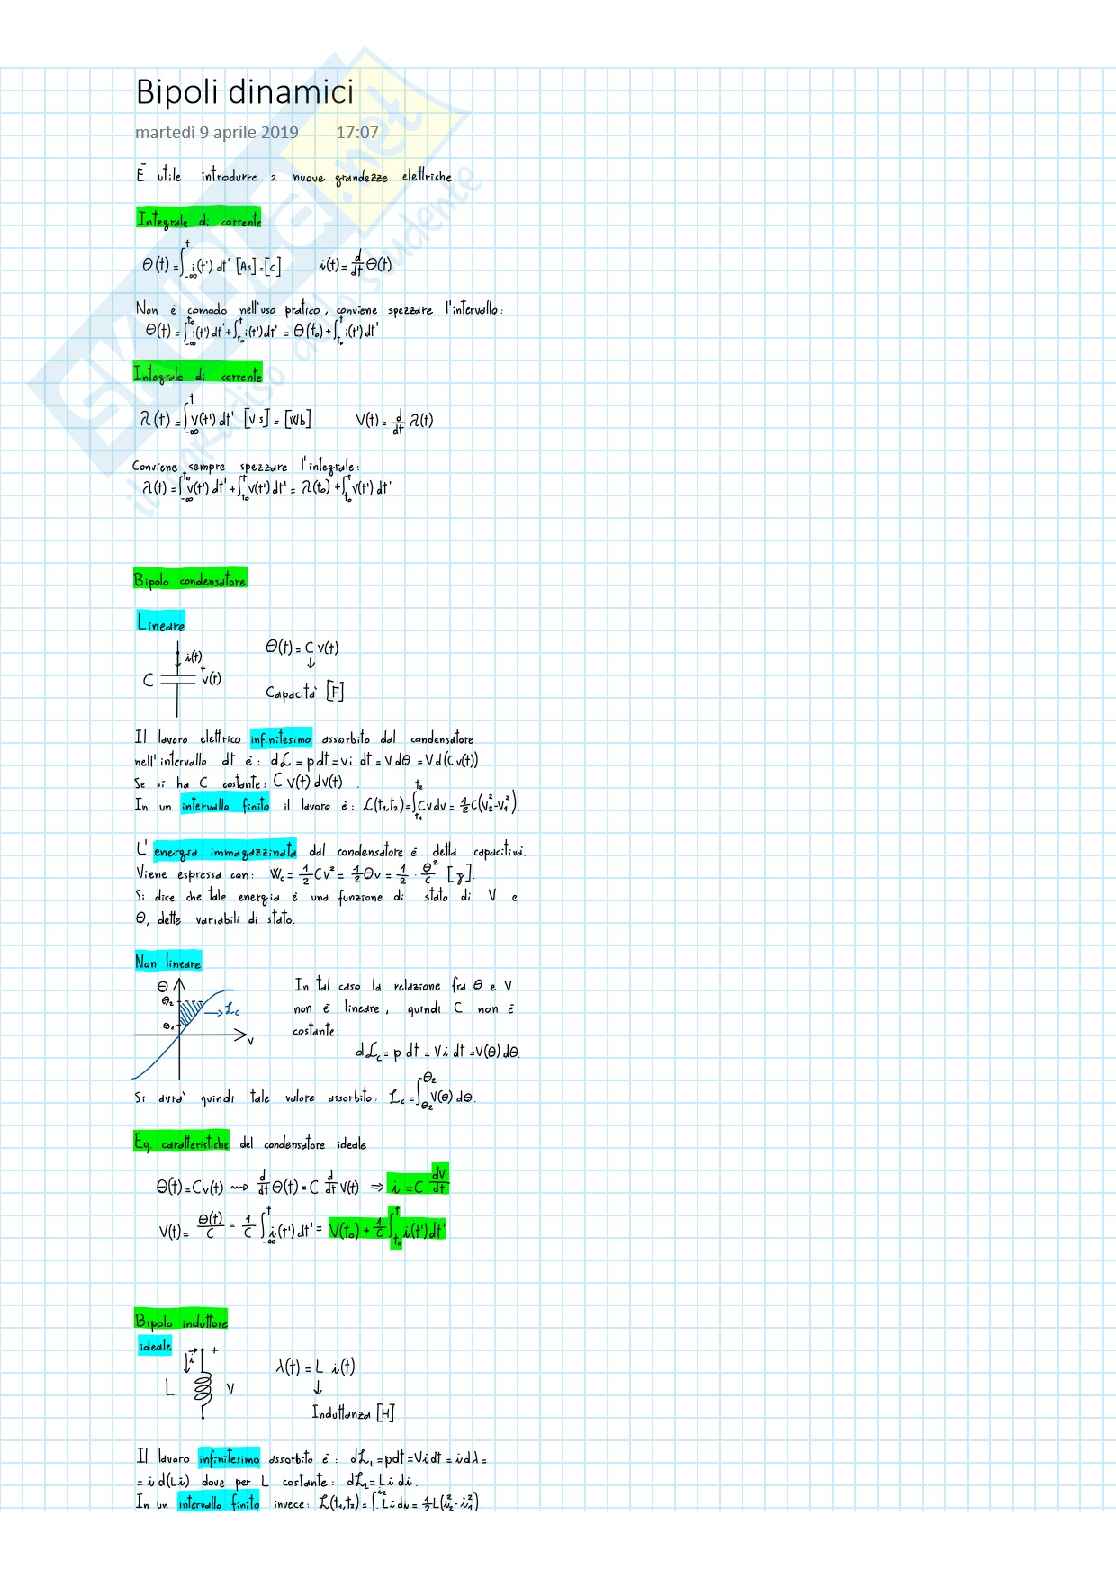 Bipoli dinamici
martedì 9 aprile 2019 17:07
È utile introdurre 2 nuove grandezze elettriche
Integrale di corrente
Θ(t) = ∫_{-∞}^{t} i(t') dt' [As] = [C] i(t) = d/dt Θ(t)
Non è comodo nell'uso pratico, conviene spezzare l'intervallo:
Θ(t) = ∫_{-∞}^{t₀} i(t') dt' + ∫_{t₀}^{t} i(t') dt' = Θ(t₀) + ∫_{t₀}^{t} i(t') dt'
Integrale di corrente
λ(t) = ∫_{-∞}^{t} v(t') dt' [Vs] = [Wb] V(t) = d/dt λ(t)
Conviene sempre spezzare l'integrale:
λ(t) = ∫_{-∞}^{t₀} v(t') dt' + ∫_{t₀}^{t} v(t') dt' = λ(t₀) + ∫_{t₀}^{t} v(t') dt'
Bipolo condensatore
Lineare
i(t) C + v(t)
Θ(t) = C v(t)
↓
Capacità [F]
Il lavoro elettrico infinitesimo assorbito dal condensatore
nell'intervallo dt è: dL = p dt = vi dt = V dΘ = V d(C v(t))
Se si ha C costante: C v(t) dv(t).
In un intervallo finito il lavoro è: L(t₁,t₂) = ∫_{t₁}^{t₂} C v dv = 1/2 C(V₂² - V₁²).
L'energia immagazzinata dal condensatore è detta capacitiva.
Viene espressa con: W_c = 1/2 C v² = 1/2 Θv = 1/2 · Θ²/C [J].
Si dice che tale energia è una funzione di stato di V e
Θ, dette variabili di stato.
Non lineare
Θ Θ₂ Θ₁ L_c V
In tal caso la relazione fra Θ e V
non è lineare, quindi C non è
costante
dL_c = p dt = V i dt = V(Θ) dΘ.
Si avrà quindi tale valore assorbito: L_c = ∫_{Θ₂}^{Θ₂} V(Θ) dΘ.
Eq. caratteristiche del condensatore ideale
Θ(t) = C v(t) ⇝ d/dt Θ(t) = C d/dt v(t) ⇒ i = C dV/dt
V(t) = Θ(t)/C = 1/C ∫_{-∞}^{t} i(t') dt' = V(t₀) + 1/C ∫_{t₀}^{t} i(t') dt'
Bipolo induttore
ideale
i + L V
λ(t) = L i(t)
↓
Induttanza [H]
Il lavoro infinitesimo assorbito è: dL_L = p dt = V i dt = i dλ =
= i d(Li) dove per L costante: dL_L = L i di.
In un intervallo finito invece: L(t₁,t₂) = ∫ L i di = 1/2 L(i₂² - i₁²)
SKUOLA.net
il paradiso dello studente